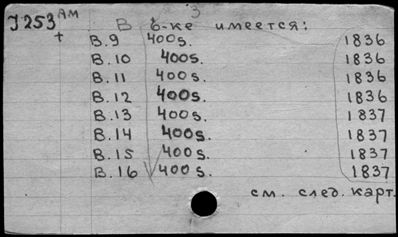 3
J253 AM В б-ке имеется:
+ B.9 400s. 1836
B.10 400s. 1836
B.11 400s. 1836
B.12 400s. 1836
B.13 400s. 1837
B.14 400s. 1837
B.15 400s. 1837
B.16 400s. 1837
см. след. карт.